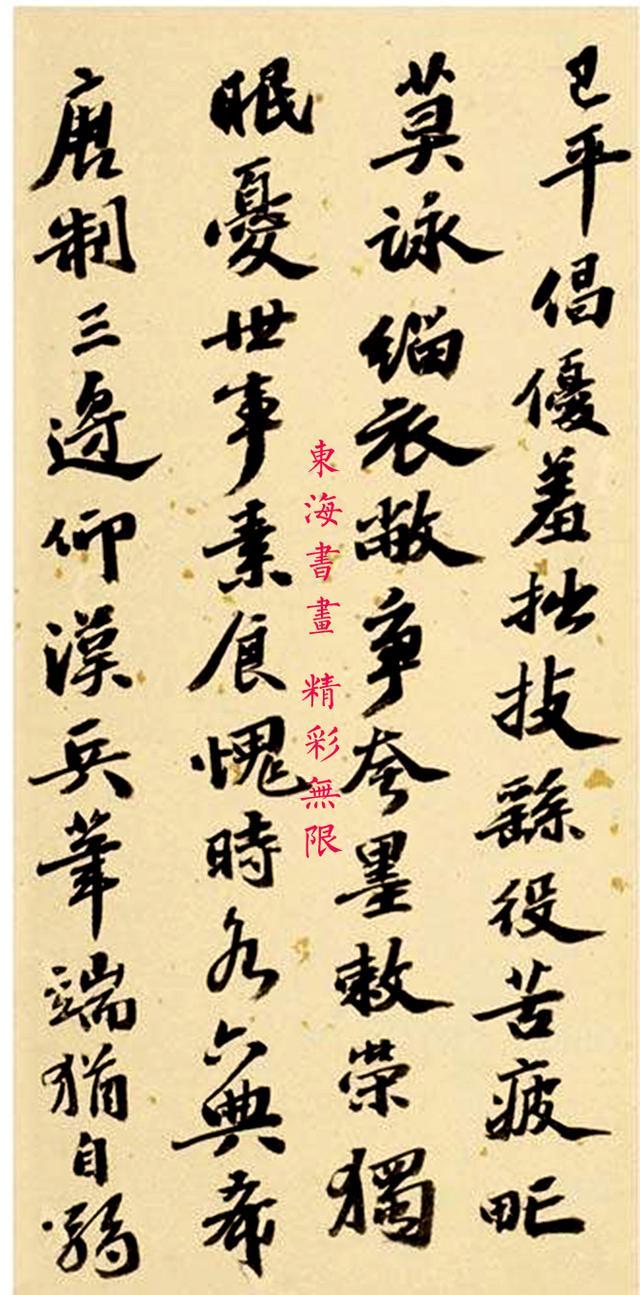 已平倡優羞拙技繇役苦疲甿
莫詠緇衣敝爭夸墨敕榮獨
眠憂世事素食愧時名六典希
唐制三邊仰漢兵筆端猶自
東海書畫 精彩無限